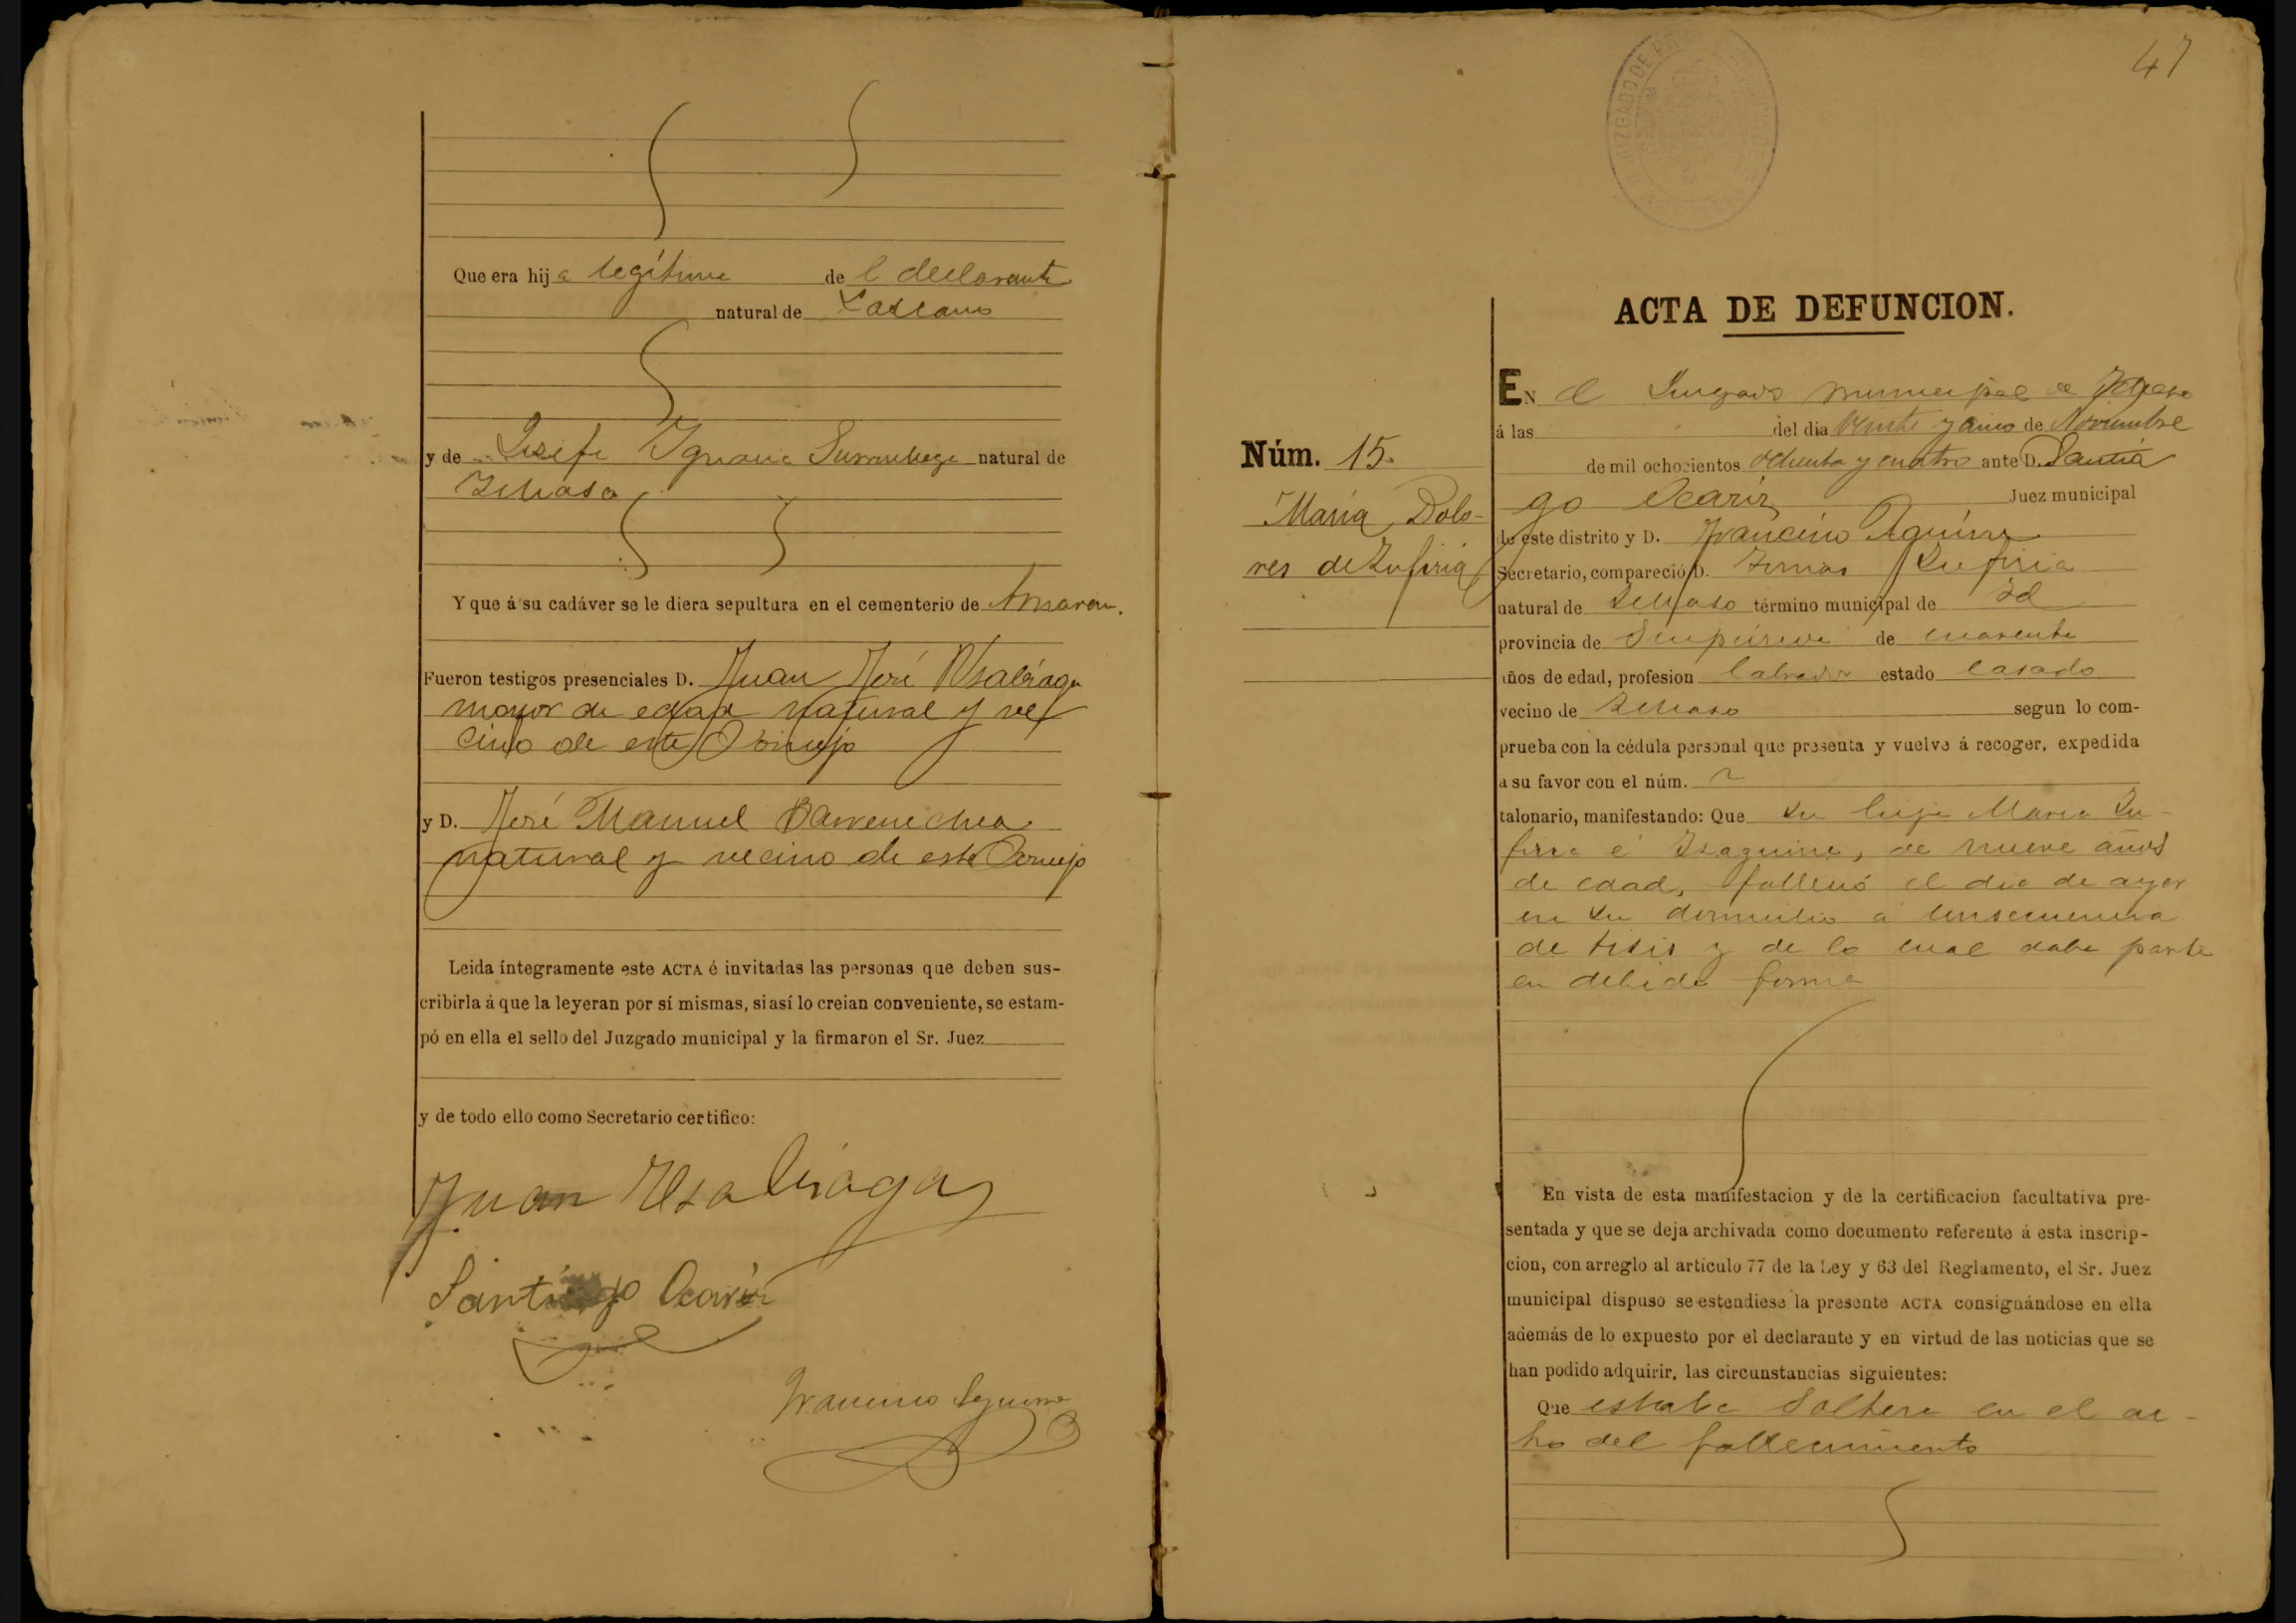 Que era hija legítima de l declarante
natural de Lazcano
y de Josefa Ygnacia natural de
Ichaso
Y que á su cadáver se le diera sepultura en el cementerio de
Fueron testigos presenciales D. Juan José Usabiaga
mayor de edad natural y ve
cino de este Concejo
y D. José Manuel Barrenechea
natural y vecino de este Concejo
Leida íntegramente este ACTA é invitadas las personas que deben sus-
cribirla á que la leyeran por sí mismas, si así lo creian conveniente, se estam-
pó en ella el sello del Juzgado municipal y la firmaron el Sr. Juez
y de todo ello como Secretario certifico:
Juan Usabiaga
Santiago Ocariz
Francisco Aguirre
47
JUZGADO DE
ACTA DE DEFUNCION.
Núm. 15.
María Dolo-
res de Zufiria
EN el Juzgado municipal de Ichaso
á las del dia veinte y cinco de Noviembre
de mil ochocientos ochenta y cuatro ante D. Santia
go Ocariz Juez municipal
de este distrito y D. Francisco Aguirre
Secretario, compareció D. Tomas Zufiria
natural de Ichaso término municipal de Id
provincia de Guipúzcoa de cuarenta
años de edad, profesion labrador estado casado
vecino de Ichaso segun lo com-
prueba con la cédula personal que presenta y vuelve á recoger, expedida
a su favor con el núm.
talonario, manifestando: Que su hija Maria Zu-
firia é Izaguirre, de nueve años
de edad, falleció el dia de ayer
en su domicilio a consecuencia
de tisis y de lo cual daba parte
en debida forma
En vista de esta manifestacion y de la certificacion facultativa pre-
sentada y que se deja archivada como documento referente á esta inscrip-
cion, con arreglo al artículo 77 de la Ley y 63 del Reglamento, el Sr. Juez
municipal dispuso se estendiese la presente ACTA consignándose en ella
además de lo expuesto por el declarante y en virtud de las noticias que se
han podido adquirir, las circunstancias siguientes:
Que estaba Soltera en el ac-
to del fallecimiento